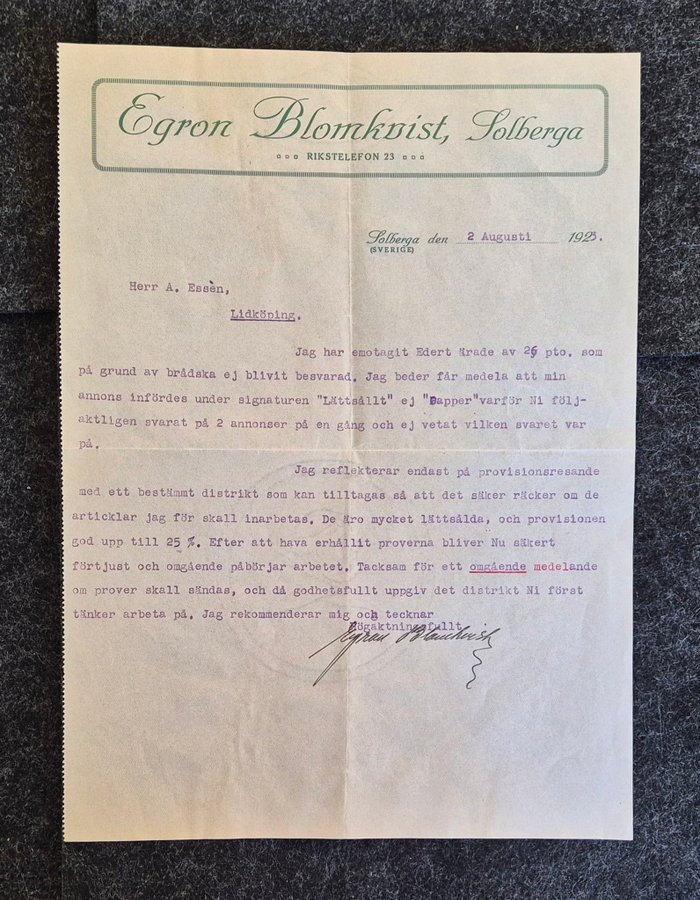 Egron Blomkvist, Solberga
RIKSTELEFON 23
Solberga den 2 Augusti 1923.
(SVERIGE)
Herr A. Essèn,
Lidköping.
Jag har emotagit Edert ärade av 26 pto. som
på grund av brådska ej blivit besvarad. Jag beder får medela att min
annons infördes under signaturen "Lättsållt" ej "Dapper"varför Ni följ-
aktligen svarat på 2 annonser på en gång och ej vetat vilken svaret var
på.
Jag reflekterar endast på provisionsresande
med ett bestämmt distrikt som kan tilltagas så att det säker räcker om de
articklar jag för skall inarbetas. De äro mycket lättsålda, och provisionen
god upp till 25 %. Efter att hava erhållit proverna bliver Nu säkert
förtjust och omgående påbörjar arbetet. Tacksam för ett omgående medelande
om prover skall sändas, och då godhetsfullt uppgiv det distrikt Ni först
tänker arbeta på. Jag rekommenderar mig och tecknar
Högaktningsfullt
Egron Blomkvist